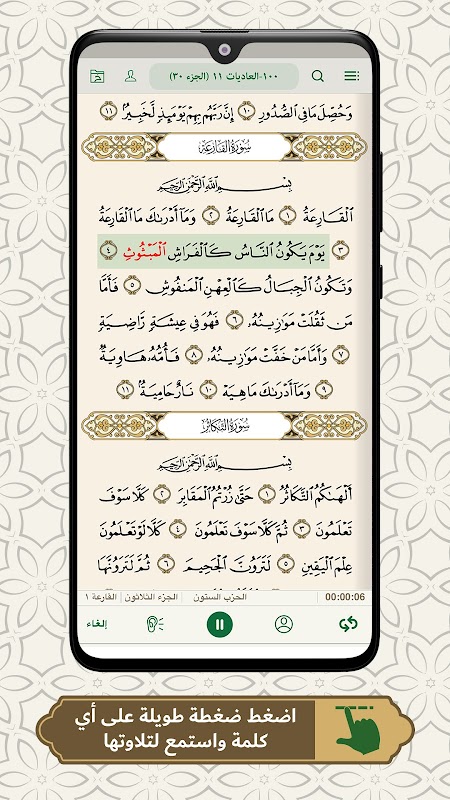 ١٠٠-العاديات ١١ (الجزء ٣٠)
وَحُصِّلَ مَا فِي ٱلصُّدُورِ ١٠ إِنَّ رَبَّهُم بِهِمۡ يَوۡمَئِذٖ لَّخَبِيرُۢ ١١
سُورَةُ القَارِعَةِ
بِسۡمِ ٱللَّهِ ٱلرَّحۡمَٰنِ ٱلرَّحِيمِ
ٱلۡقَارِعَةُ ١ مَا ٱلۡقَارِعَةُ ٢ وَمَآ أَدۡرَىٰكَ مَا ٱلۡقَارِعَةُ
٣ يَوۡمَ يَكُونُ ٱلنَّاسُ كَٱلۡفَرَاشِ ٱلۡمَبۡثُوثِ ٤
وَتَكُونُ ٱلۡجِبَالُ كَٱلۡعِهۡنِ ٱلۡمَنفُوشِ ٥ فَأَمَّا
مَن ثَقُلَتۡ مَوَٰزِينُهُۥ ٦ فَهُوَ فِي عِيشَةٖ رَّاضِيَةٖ
٧ وَأَمَّا مَنۡ خَفَّتۡ مَوَٰزِينُهُۥ ٨ فَأُمُّهُۥ هَاوِيَةٞ
٩ وَمَآ أَدۡرَىٰكَ مَا هِيَهۡ ١٠ نَارٌ حَامِيَةُۢ ١١
سُورَةُ التَّكَاثُرِ
بِسۡمِ ٱللَّهِ ٱلرَّحۡمَٰنِ ٱلرَّحِيمِ
أَلۡهَىٰكُمُ ٱلتَّكَاثُرُ ١ حَتَّىٰ زُرۡتُمُ ٱلۡمَقَابِرَ ٢ كَلَّا سَوۡفَ
تَعۡلَمُونَ ٣ ثُمَّ كَلَّا سَوۡفَ تَعۡلَمُونَ ٤ كَلَّا لَوۡ تَعۡلَمُونَ
عِلۡمَ ٱلۡيَقِينِ ٥ لَتَرَوُنَّ ٱلۡجَحِيمَ ٦ ثُمَّ لَتَرَوُنَّهَا
القارعة ١ الجزء الثلاثون الحزب الستون 00:00:06
إلغاء
اضغط ضغطة طويلة على أي
كلمة واستمع لتلاوتها